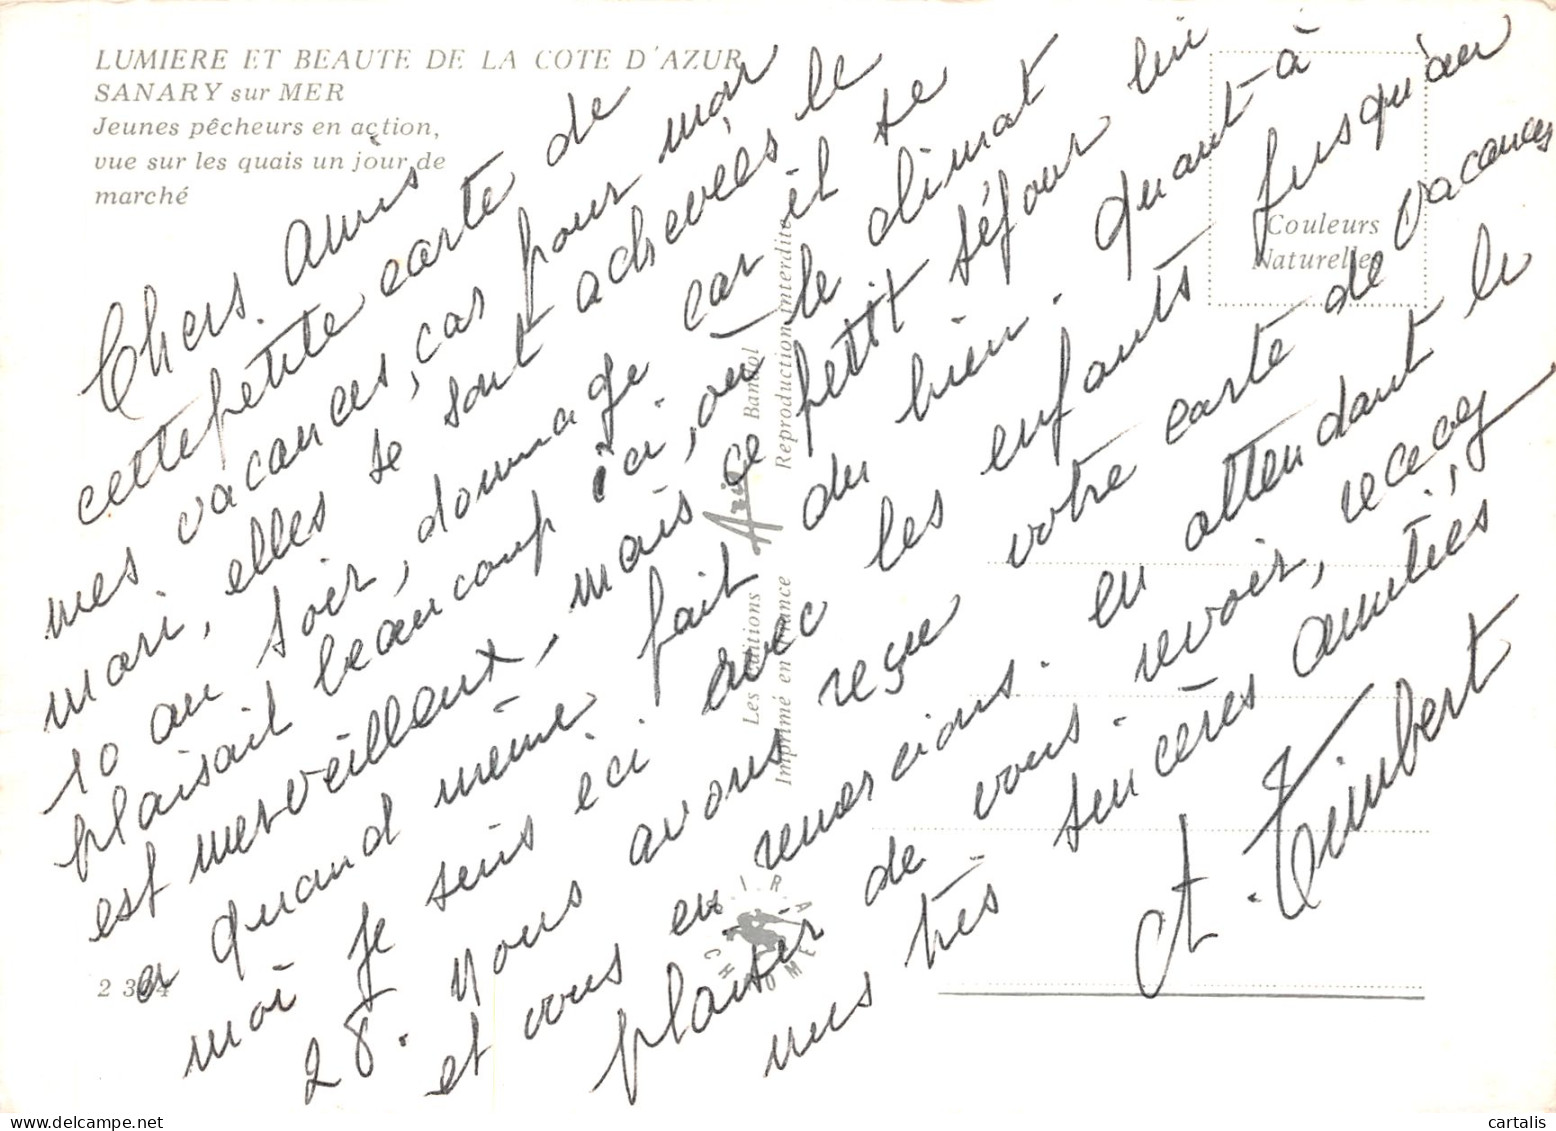 LUMIERE ET BEAUTE DE LA COTE D'AZUR
SANARY sur MER
Jeunes pêcheurs en action,
vue sur les quais un jour de
marché
Couleurs
Naturelles
Chers amis
cette petite carte de
mes vacances, car pour mon
mari, elles se sont achevées le
10 au soir, dommage car il te
plaisait beaucoup ici, où le climat
est merveilleux, mais ce petit séjour lui
a quand même fait du bien. quant à
moi je suis ici avec les enfants jusqu'au
28. nous avons reçu votre carte de vacances
et vous en remercions. en attendant le
plaisir de vous revoir, recevez
nos très sincères amitiés
A. Timbert
Les Editions Aris Bandol
Imprimé en France Reproduction interdite
MIRACHROME